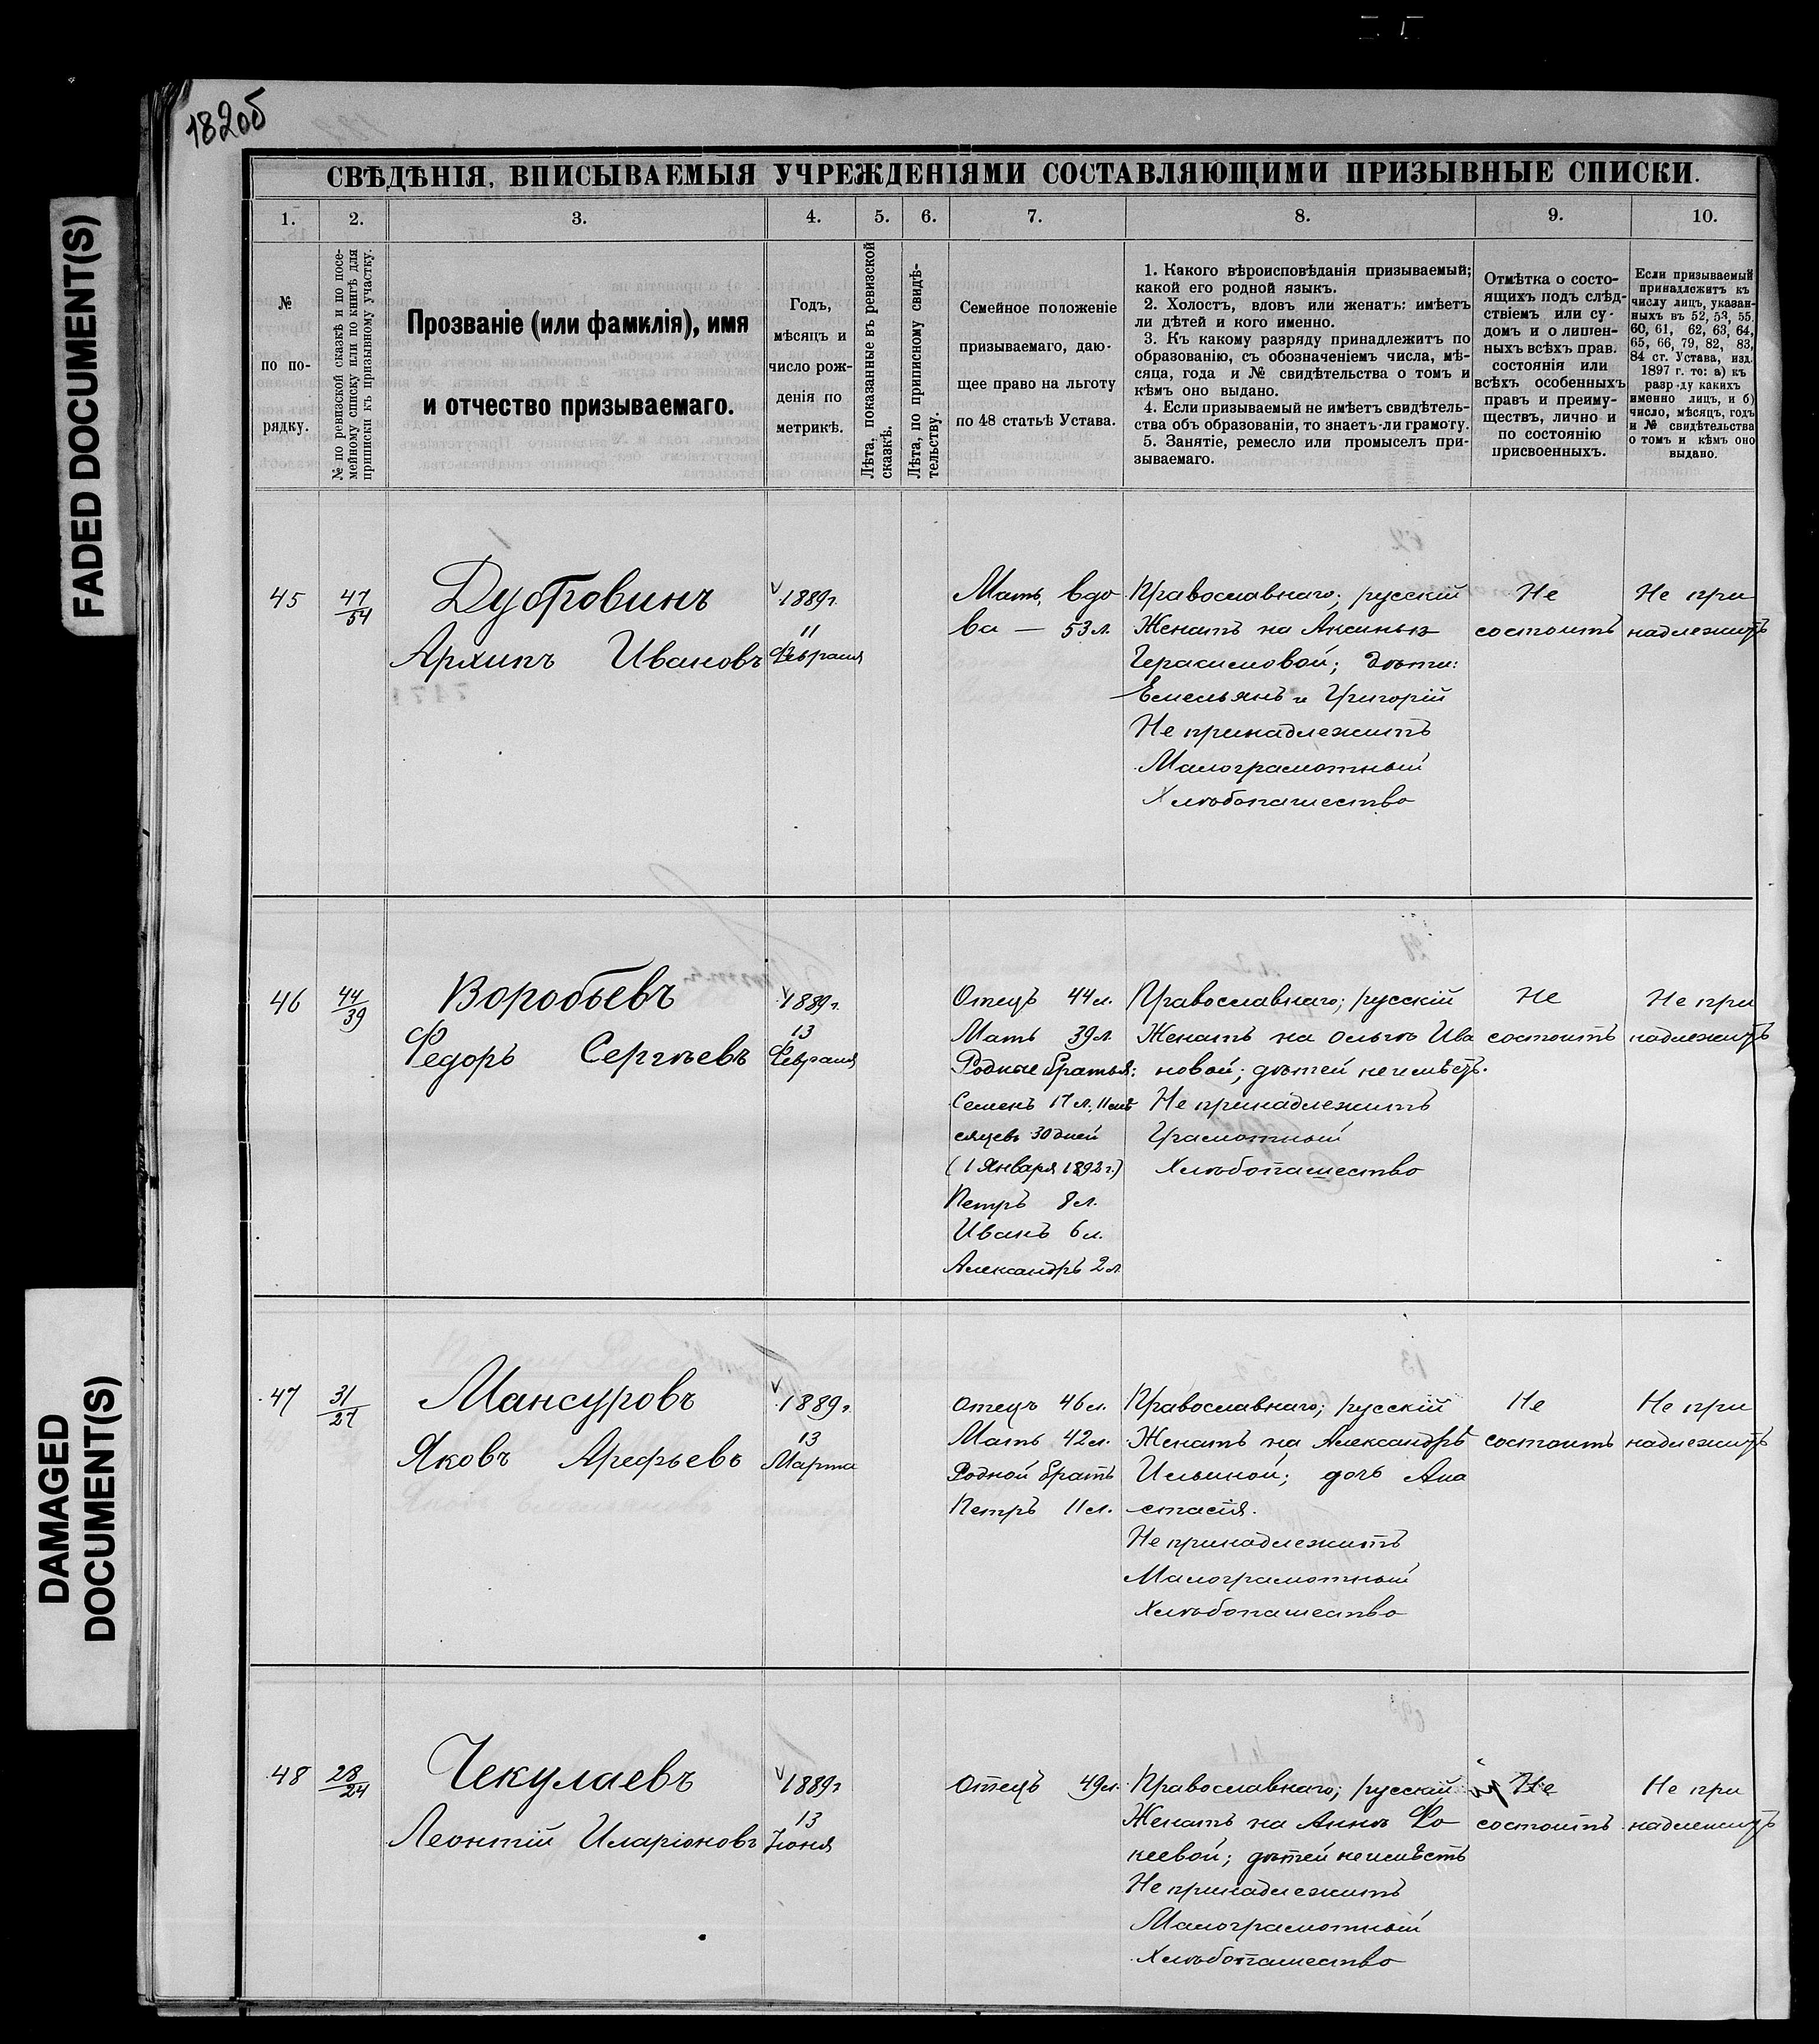 182об
FADED DOCUMENT(S)
DAMAGED
DOCUMENT(S)
СВѢДѢНІЯ, ВПИСЫВАЕМЫЯ УЧРЕЖДЕНІЯМИ СОСТАВЛЯЮЩИМИ ПРИЗЫВНЫЕ СПИСКИ.
1. 2. 3. 4. 5. 6. 7. 8. 9. 10.
№
по по-
рядку.
№ по ревизской сказкѣ и по посе-
мейному списку или по книгѣ для
приписки къ призывному участку.
Прозваніе (или фамилія), имя
и отчество призываемаго.
Годъ,
мѣсяцъ и
число рож-
денія по
метрикѣ.
Лѣта, показанные въ ревизской
сказкѣ.
Лѣта, по приписному свидѣ-
тельству.
Семейное положеніе
призываемаго, даю-
щее право на льготу
по 48 статьѣ Устава.
1. Какого вѣроисповѣданія призываемый;
какой его родной языкъ.
2. Холостъ, вдовъ или женатъ: имѣетъ
ли дѣтей и кого именно.
3. Къ какому разряду принадлежитъ по
образованію, съ обозначеніемъ числа, мѣ-
сяца, года и № свидѣтельства о томъ и
кѣмъ оно выдано.
4. Если призываемый не имѣетъ свидѣтель-
ства объ образованіи, то знаетъ-ли грамоту.
5. Занятіе, ремесло или промыселъ при-
зываемаго.
Отмѣтка о состо-
ящихъ подъ слѣд-
ствіемъ или су-
домъ и о лишен-
ныхъ всѣхъ прав.
состоянія или
всѣхъ особенныхъ
правъ и преиму-
ществъ, лично и
по состоянію
присвоенныхъ.
Если призываемый
принадлежитъ къ
числу лицъ, указан-
ныхъ въ 52, 53, 55,
60, 61, 62, 63, 64,
65, 66, 79, 82, 83,
84 ст. Устава, изд.
1897 г. то: а) къ
разр-ду какихъ
именно лицъ, и б)
число, мѣсяцъ, годъ
и № свидѣтельства
о томъ и кѣмъ оно
выдано.
45
47/54
Дубровинъ
Архипъ Ивановъ
1889г.
11
Февраля
Мать, вдо
ва — 53 л.
Православнаго; русскій
Женатъ на Аксиньѣ
Герасимовой; дѣти:
Емельянъ и Григорій
Не принадлежитъ
Малограмотный
Хлѣбопашество
Не
состоитъ
Не при
надлежитъ
46
44/39
Воробьевъ
Федоръ Сергѣевъ
1889г.
13
Февраля
Отецъ 44 л.
Мать 39 л.
Родные братья:
Семенъ 17 л., 11 мѣ
сяцевъ 30 дней
(1 Января 1892 г.)
Петръ 8 л.
Иванъ 6 л.
Александръ 2 л
Православнаго; русскій
Женатъ на Ольгѣ Ива
новой; дѣтей не имѣетъ.
Не принадлежитъ
Грамотный
Хлѣбопашество
Не
состоитъ
Не при
надлежитъ
47
31/27
Мансуровъ
Яковъ Арефьевъ
1889г.
13
Марта
Отецъ 46 л.
Мать 42 л.
Родной братъ
Петръ 11 л.
Православнаго; русскій
Женатъ на Александрѣ
Ильиной; дочь Ана
стасія.
Не принадлежитъ
Малограмотный
Хлѣбопашество
Не
состоитъ
Не при
надлежитъ
48
28/24
Чекулаевъ
Леонтій Иларіоновъ
1889г
13
Іюня
Отецъ 49 л.
Православнаго; русскій
Женатъ на Аннѣ Фо
кеевой; дѣтей не имѣетъ
Не принадлежитъ
Малограмотный
Хлѣбопашество
Не
состоитъ
Не при
надлежитъ